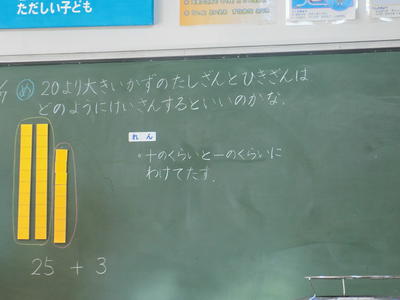 ただしい子ども
め 20より大きいかずのたしざんとひきざんは
どのようにけいさんするといいのかな。
れん
・十のくらいと一のくらいに
わけてたす。
25 + 3